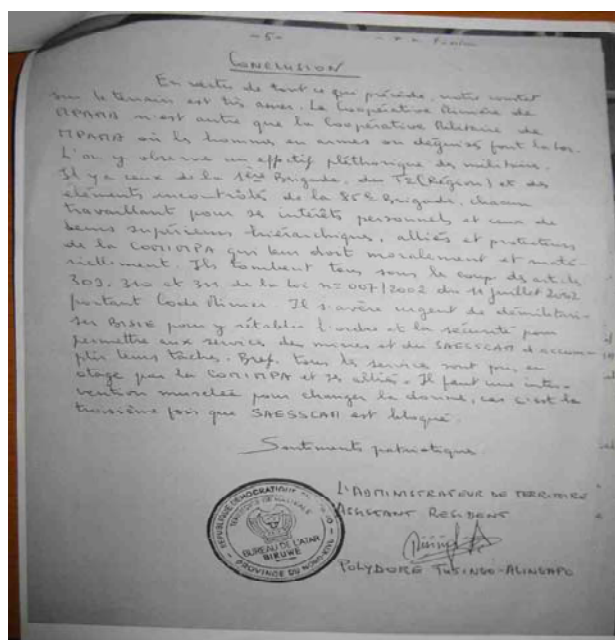 - 5 -
CONCLUSION
En vertu de tout ce que précède, notre constat
sur le terrain est très amer. La Coopérative Minière de
MPAMA n'est autre que la Coopérative Militaire de
MPAMA où les hommes en armes ou déguisés font la loi.
L'on y observe un effectif pléthorique des militaires.
Il y a ceux de la 1ère Brigade, du T2 (Région) et des
éléments incontrôlés de la 85è Brigade, chacun
travaillant pour ses intérêts personnels et ceux de
leurs supérieurs hiérarchiques, alliés et protecteurs
de la COMIMPA qui leur doit moralement et maté-
riellement. Ils tombent tous sous le coup des articles
309, 310 et 311 de la Loi n° 007/2002 du 11 juillet 2002
portant Code Minier. Il s'avère urgent de démilitari-
ser BISIE pour y rétablir l'ordre et la sécurité pour
permettre aux services des mines et du SAESSCAM d'accom-
plir leurs tâches. Bref, tous les services sont pris en
otage par la COMIMPA et ses alliés. Il faut une inter-
vention musclée pour changer la donne, car c'est la
troisième fois que SAESSCAM est bloqué.
Sentiments patriotiques.
L'ADMINISTRATEUR DE TERRITOIRE
ASSISTANT RESIDENT
POLYDORE TUSINGO-ALINGAPO
REPUBLIQUE DEMOCRATIQUE
TERRITOIRE DE WALIKALE
BUREAU DE L'ATAR
BIRUWE
PROVINCE DU NORD KIVU